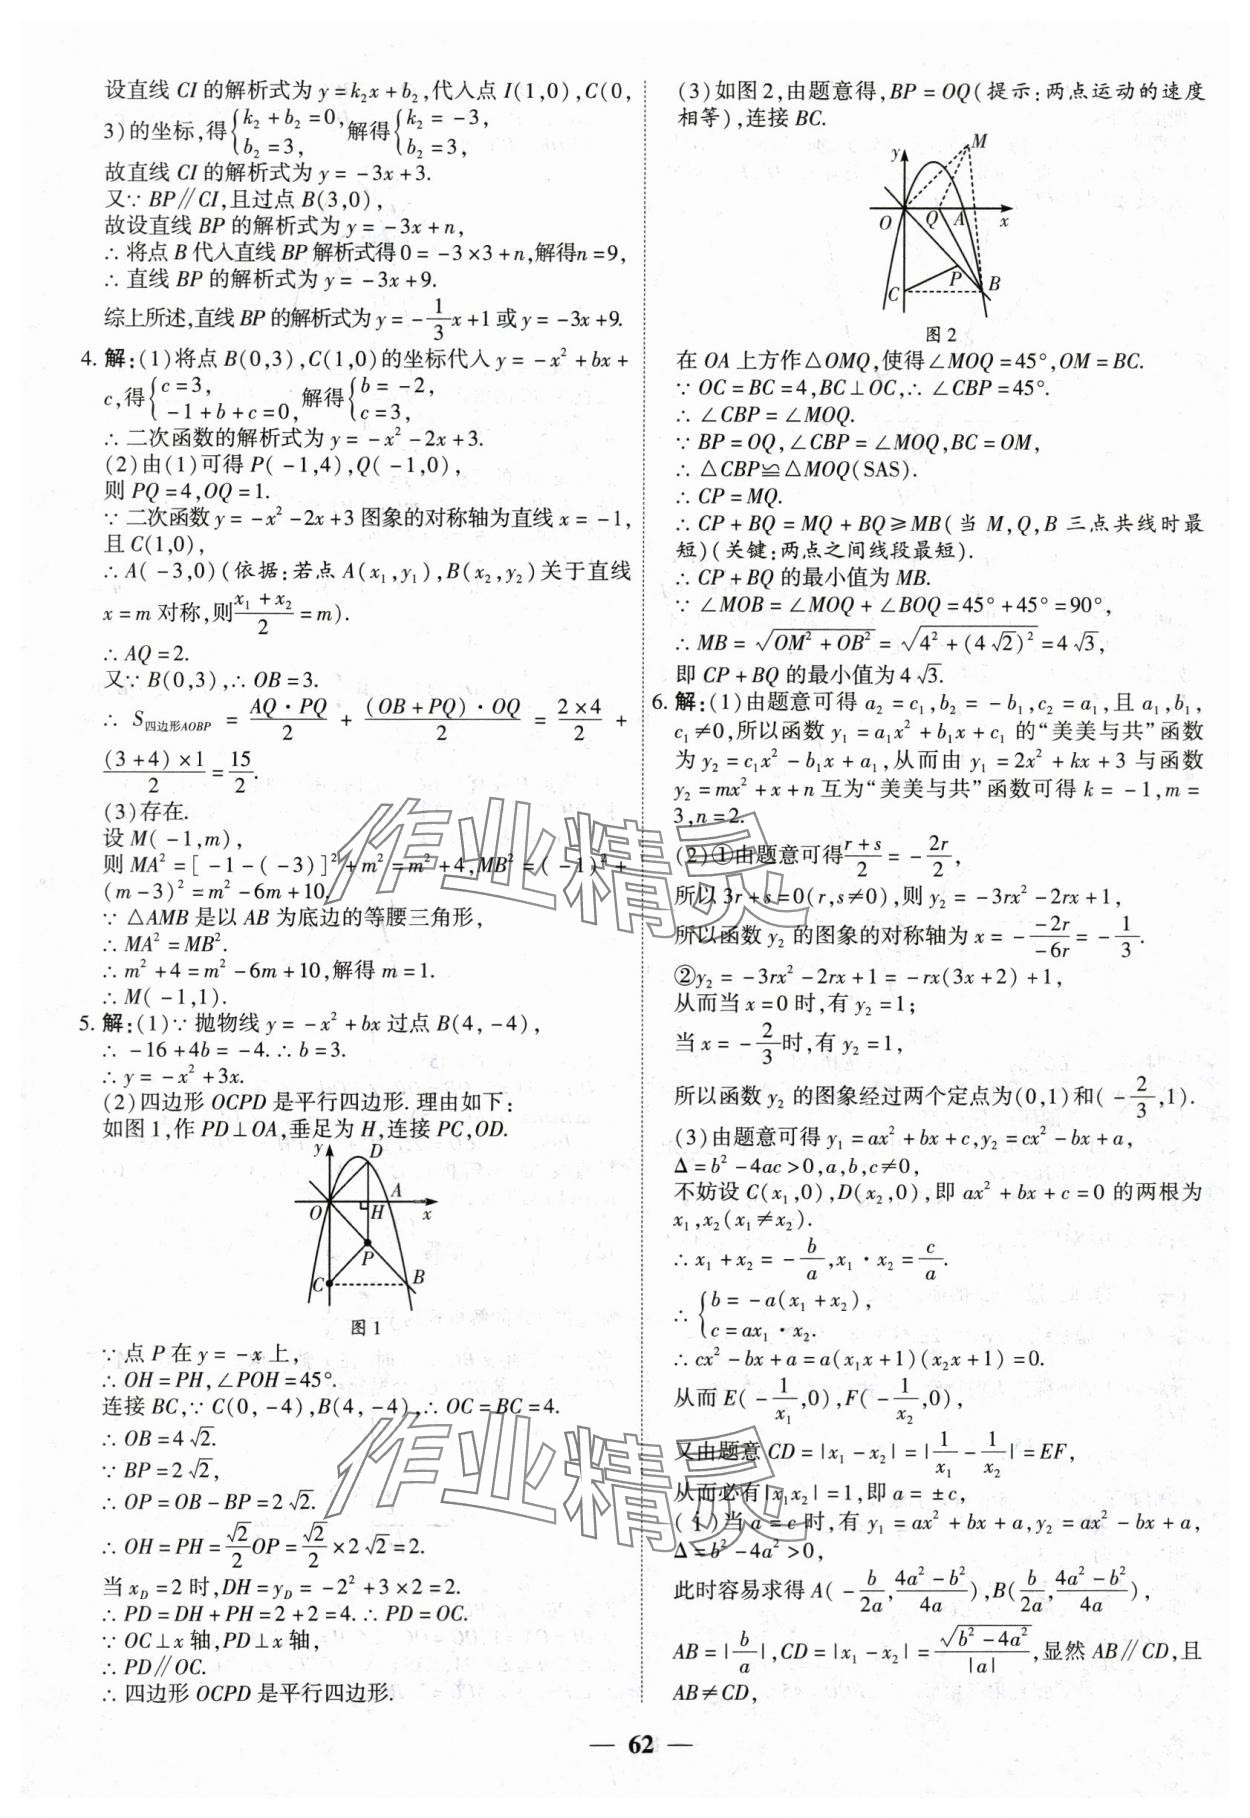 设直线 CI 的解析式为 y=k₂x+b₂,代入点 I(1,0),C(0,
3)的坐标,得{k₂+b₂=0, b₂=3, 解得{k₂=-3, b₂=3,
故直线 CI 的解析式为 y=-3x+3.
又∵BP∥CI,且过点 B(3,0),
故设直线 BP 的解析式为 y=-3x+n,
∴将点 B 代入直线 BP 解析式得 0=-3×3+n,解得n=9,
∴直线 BP 的解析式为 y=-3x+9.
综上所述,直线 BP 的解析式为 y=-1/3x+1 或 y=-3x+9.
4. 解:(1)将点 B(0,3),C(1,0)的坐标代入 y=-x²+bx+
c,得{c=3, -1+b+c=0, 解得{b=-2, c=3,
∴二次函数的解析式为 y=-x²-2x+3.
(2)由(1)可得 P(-1,4),Q(-1,0),
则 PQ=4,OQ=1.
∵二次函数 y=-x²-2x+3 图象的对称轴为直线 x=-1,
且 C(1,0),
∴A(-3,0)(依据:若点 A(x₁,y₁),B(x₂,y₂)关于直线
x=m 对称,则(x₁+x₂)/2=m).
∴AQ=2.
又∵B(0,3),∴OB=3.
∴S四边形AOBP=AQ·PQ/2+(OB+PQ)·OQ/2=2×4/2+
(3+4)×1/2=15/2.
(3)存在.
设 M(-1,m),
则 MA²=[-1-(-3)]²+m²=m²+4,MB²=(-1)²+
(m-3)²=m²-6m+10.
∵△AMB 是以 AB 为底边的等腰三角形,
∴MA²=MB².
∴m²+4=m²-6m+10,解得 m=1.
∴M(-1,1).
5. 解:(1)∵抛物线 y=-x²+bx 过点 B(4,-4),
∴-16+4b=-4.∴b=3.
∴y=-x²+3x.
(2)四边形 OCPD 是平行四边形.理由如下:
如图 1,作 PD⊥OA,垂足为 H,连接 PC,OD.
y
D
A
O
H
x
P
C
B
图 1
∵点 P 在 y=-x 上,
∴OH=PH,∠POH=45°.
连接 BC,∵C(0,-4),B(4,-4),∴OC=BC=4.
∴OB=4√2.
∵BP=2√2,
∴OP=OB-BP=2√2.
∴OH=PH=√2/2OP=√2/2×2√2=2.
当 x_D=2 时,DH=y_D=-2²+3×2=2.
∴PD=DH+PH=2+2=4.∴PD=OC.
∵OC⊥x 轴,PD⊥x 轴,
∴PD∥OC.
∴四边形 OCPD 是平行四边形.
(3)如图 2,由题意得,BP=OQ(提示:两点运动的速度
相等),连接 BC.
M
y
O
Q
A
x
P
C
B
图 2
在 OA 上方作△OMQ,使得∠MOQ=45°,OM=BC.
∵OC=BC=4,BC⊥OC,∴∠CBP=45°.
∴∠CBP=∠MOQ.
∵BP=OQ,∠CBP=∠MOQ,BC=OM,
∴△CBP≌△MOQ(SAS).
∴CP=MQ.
∴CP+BQ=MQ+BQ≥MB(当 M,Q,B 三点共线时最
短)(关键:两点之间线段最短).
∴CP+BQ 的最小值为 MB.
∵∠MOB=∠MOQ+∠BOQ=45°+45°=90°,
∴MB=√(OM²+OB²)=√(4²+(4√2)²)=4√3,
即 CP+BQ 的最小值为 4√3.
6. 解:(1)由题意可得 a₂=c₁,b₂=-b₁,c₂=a₁,且 a₁,b₁,
c₁≠0,所以函数 y₁=a₁x²+b₁x+c₁ 的“美美与共”函数
为 y₂=c₁x²-b₁x+a₁,从而由 y₁=2x²+kx+3 与函数
y₂=mx²+x+n 互为“美美与共”函数可得 k=-1,m=
3,n=2.
(2)①由题意可得(r+s)/2=-2r/2,
所以 3r+s=0(r,s≠0),则 y₂=-3rx²-2rx+1,
所以函数 y₂ 的图象的对称轴为 x=-(-2r)/(-6r)=-1/3.
②y₂=-3rx²-2rx+1=-rx(3x+2)+1,
从而当 x=0 时,有 y₂=1;
当 x=-2/3时,有 y₂=1,
所以函数 y₂ 的图象经过两个定点为(0,1)和(-2/3,1).
(3)由题意可得 y₁=ax²+bx+c,y₂=cx²-bx+a,
Δ=b²-4ac>0,a,b,c≠0,
不妨设 C(x₁,0),D(x₂,0),即 ax²+bx+c=0 的两根为
x₁,x₂(x₁≠x₂).
∴x₁+x₂=-b/a,x₁·x₂=c/a.
∴{b=-a(x₁+x₂), c=ax₁·x₂.
∴cx²-bx+a=a(x₁x+1)(x₂x+1)=0.
从而 E(-1/x₁,0),F(-1/x₂,0),
又由题意 CD=|x₁-x₂|=|1/x₁-1/x₂|=EF,
从而必有|x₁x₂|=1,即 a=±c,
(i)当 a=c 时,有 y₁=ax²+bx+a,y₂=ax²-bx+a,
Δ=b²-4a²>0,
此时容易求得 A(-b/2a,(4a²-b²)/4a),B(b/2a,(4a²-b²)/4a),
AB=|b/a|,CD=|x₁-x₂|=√(b²-4a²)/|a|,显然 AB∥CD,且
AB≠CD,
作业精灵
作业精灵
— 62 —